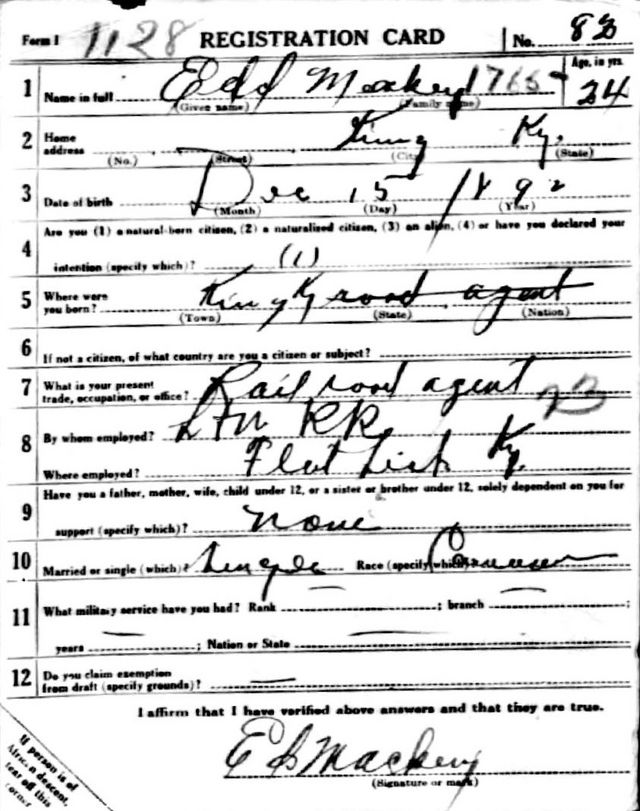 Form 1 1128 REGISTRATION CARD No. 83
1 Name in full Edd Mackey 1765 Age, in yrs. 24
(Given name) (Family name)
2 Home address King Ky.
(No.) (Street) (City) (State)
3 Date of birth Dec 15 1892
(Month) (Day) (Year)
4 Are you (1) a natural-born citizen, (2) a naturalized citizen, (3) an alien, (4) or have you declared your
intention (specify which)? (1)
5 Where were you born? King Ky road agent
(Town) (State) (Nation)
6 If not a citizen, of what country are you a citizen or subject?
7 What is your present trade, occupation, or office? Rail road agent 23
8 By whom employed? L + N RR
Where employed? Flat Lick Ky.
9 Have you a father, mother, wife, child under 12, or a sister or brother under 12, solely dependent on you for
support (specify which)? None
10 Married or single (which)? Single Race (specify which)? Caucasian
11 What military service have you had? Rank ; branch ;
years ; Nation or State
12 Do you claim exemption from draft (specify grounds)?
I affirm that I have verified above answers and that they are true.
Ed Mackey
(Signature or mark)
If person is of
African descent,
tear off this
corner